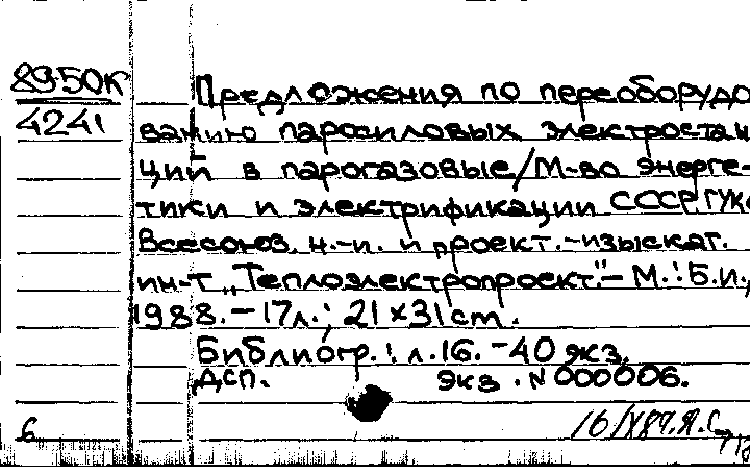 8950к
4241
Предложения по переоборудо
ванию паросиловых электростан
ций в парогазовые/М-во энерге-
тики и электрификации СССР, ГУК
Всесоюз. н.-и. и проект.-изыскат.
ин-т „Теплоэлектропроект".- М.: Б.и.,
1988. - 17л.; 21 х 31 cm.
Библиогр.: л.16. - 40 экз.
ДСП. экз. N 000006.
6